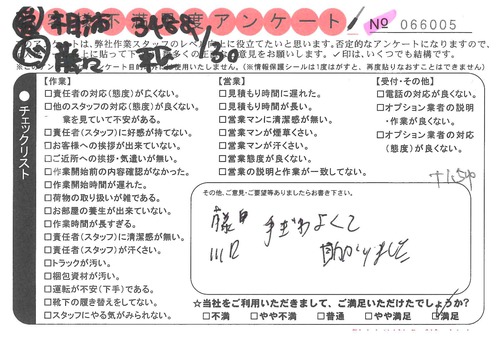 度アンケート
№ 066005
のアンケートは、弊社作業スタッフのレベル向上に役立てたいと思います。否定的なアンケートになりますので、
チェックリスト
【作業】
□責任者の対応(態度)が悪い。
□他のスタッフの対応(態度)が良くない。
業を見ていて不安がある。
□責任者(スタッフ)に好感が持てない。
□お客様への挨拶が出来ていない。
□ご近所への挨拶・気遣いが無い。
□作業開始前の内容確認がなかった。
□作業開始時間が遅れた。
□荷物の取り扱いが雑である。
□お部屋の養生が出来ていない。
□作業時間が長すぎる。
□責任者(スタッフ)に清潔感が無い。
□責任者(スタッフ)が汗くさい。
□トラックが汚い。
□梱包資材が汚い。
□運転が不安(下手)である。
□靴下の履き替えをしてない。
□スタッフにやる気がみられない。
【営業】
□見積もり時間に遅れた。
□見積もり時間が長い。
□営業マンに清潔感が無い。
□営業マンが煙草くさい。
□営業マンが汗くさい。
□営業態度が良くない。
□営業の説明と作業が一致してない。
【受付・その他】
□電話の対応が良くない。
□オプション業者の説明
・作業が良くない。
□オプション業者の対応
(態度)が良くない。
その他、ご意見・ご要望等ありましたらお書き下さい。
藤田 手ぎわよくて
川口 助かりました
☆当社をご利用いただきまして、ご満足いただけたでしょうか?
□不満 □やや不満 □普通 □やや満足 □満足